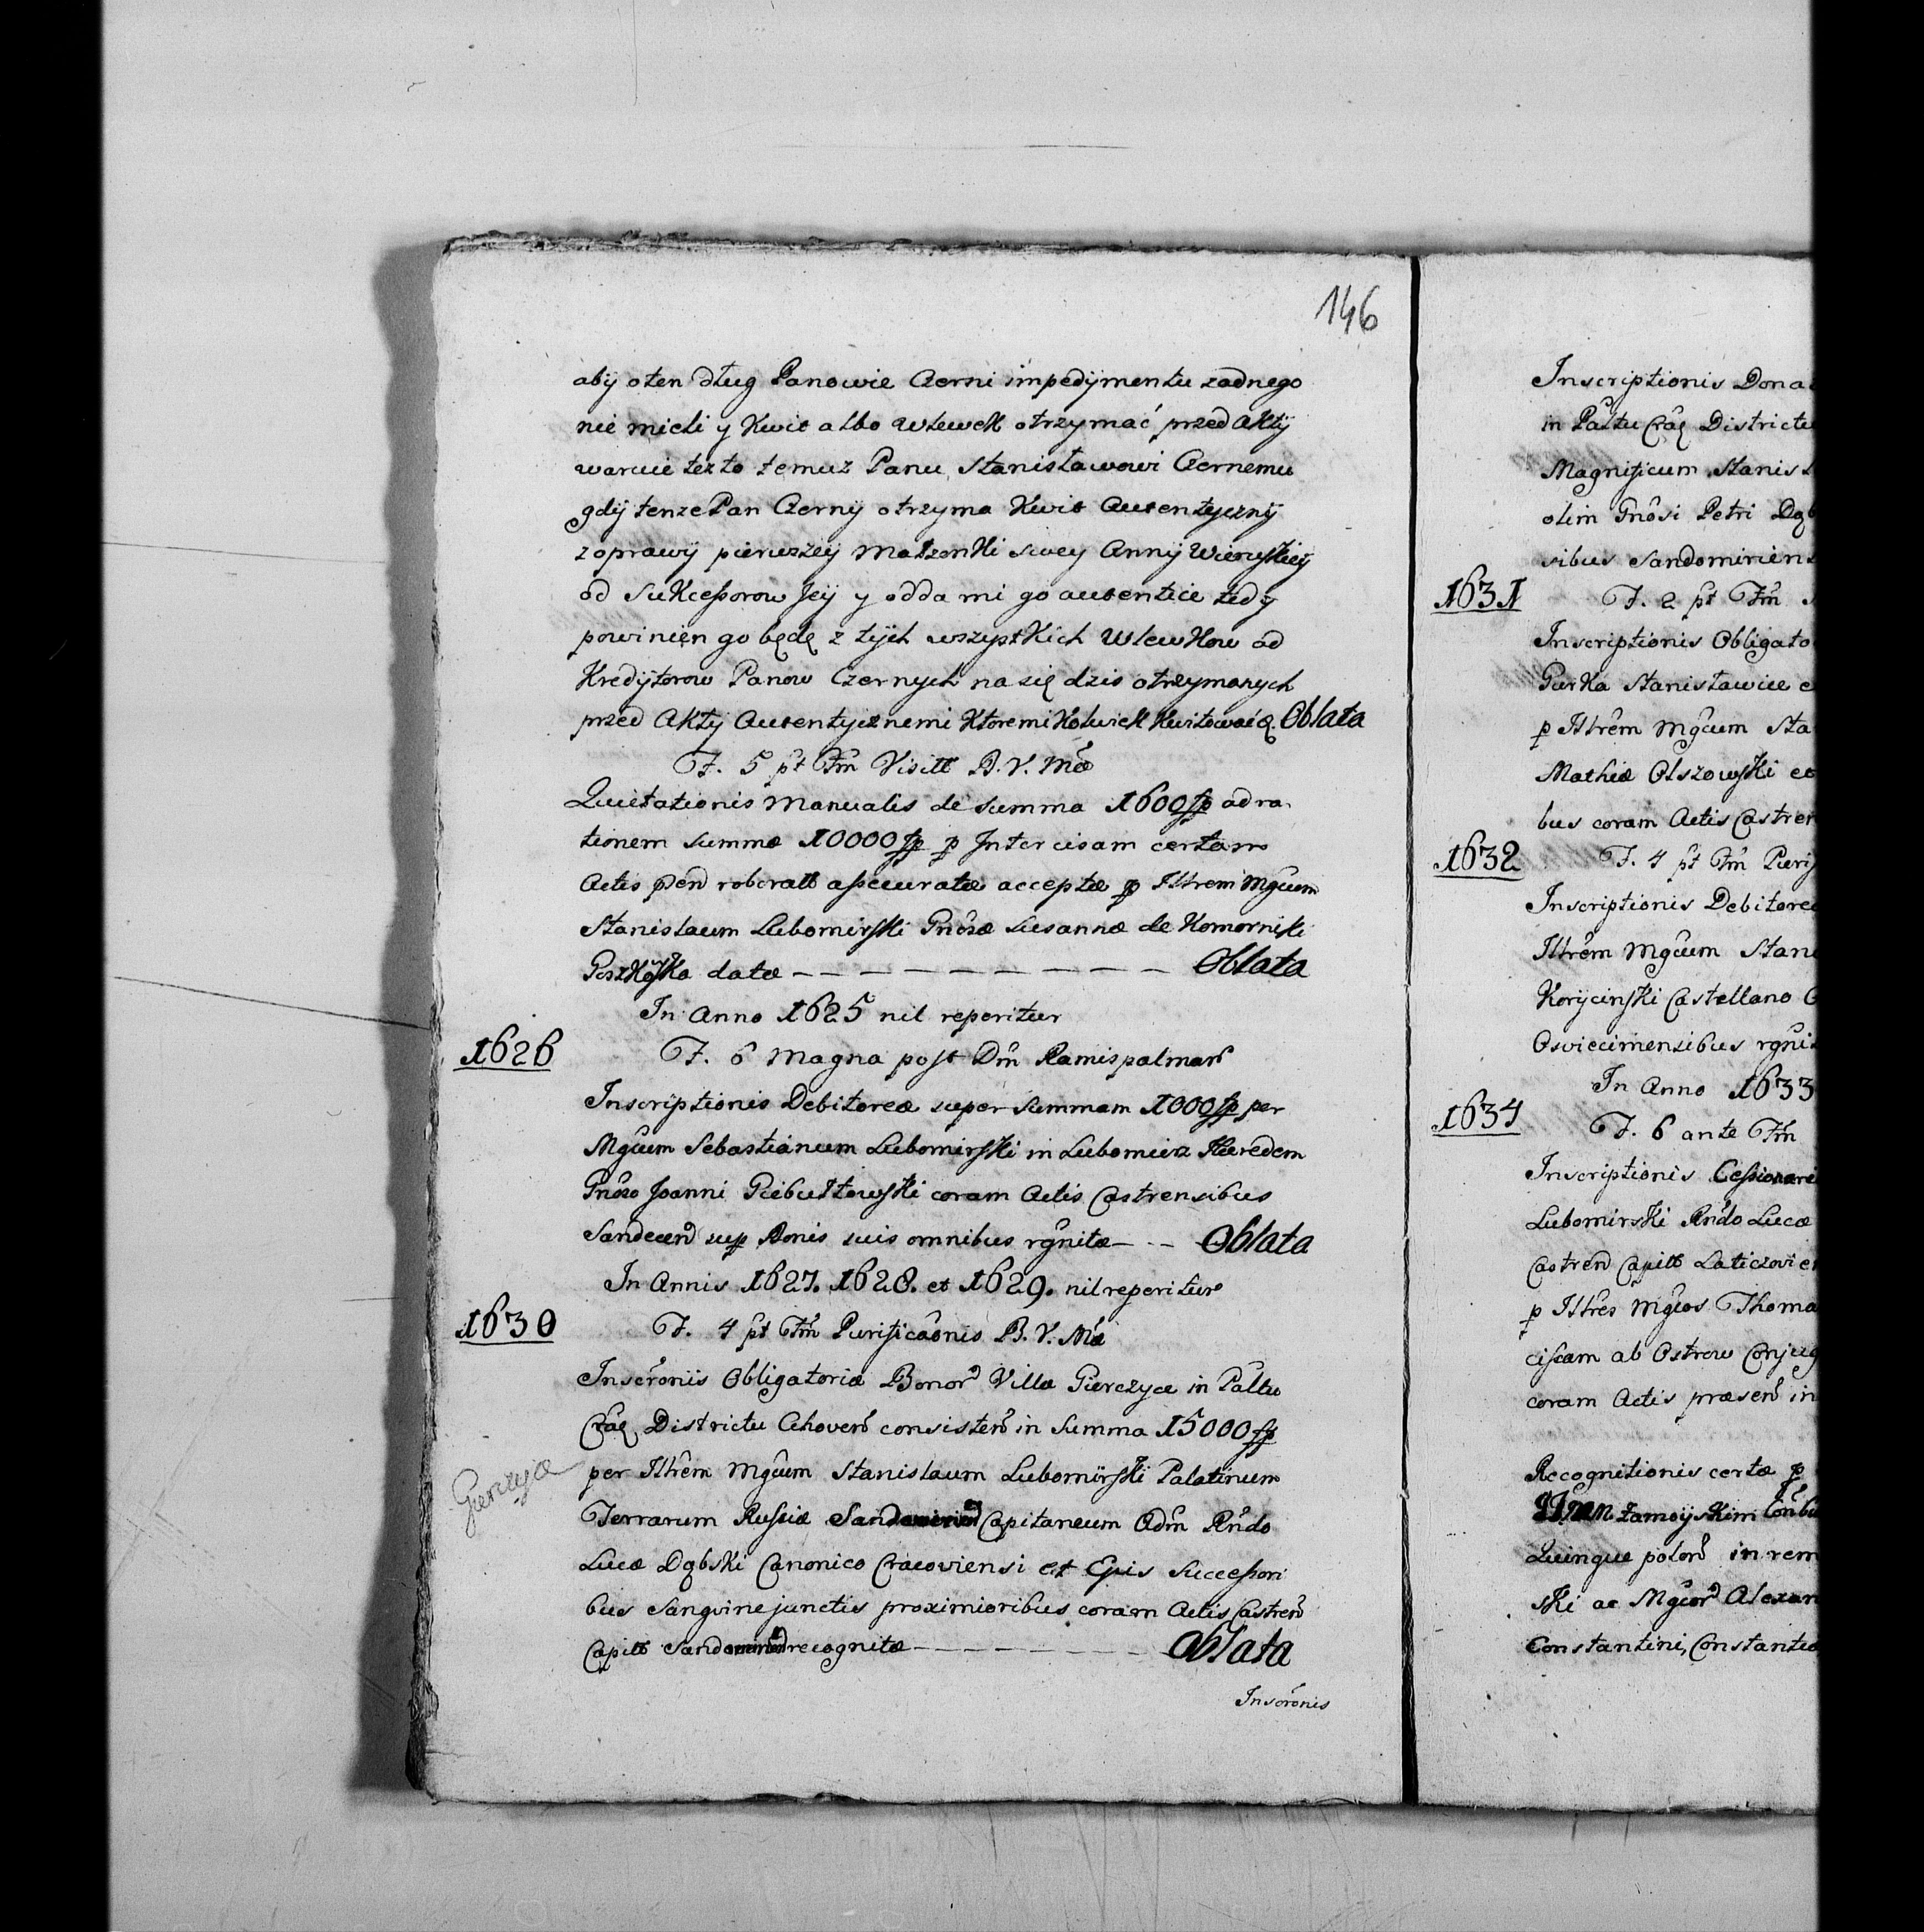 146
abÿ o ten dług Panowie Czerni impedÿmentu zadnego
nie mieli y Kwit albo Wlewek otrzymać przed Aktÿ
waruie tez to temuz Panu Stanisławowi Czernemu
gdÿ tenze Pan Czernÿ otrzyma Kwit Autentycznÿ
z oprawÿ pierwszeÿ Małzonki swey Annÿ Wieruskieÿ
od Sukceßorow Jeÿ y odda mi go autentice tedÿ
powinien go będę z tÿch wszystkich Wlewkow od
Kredÿtorow Panow Czernych na się dzis otrzymanych
przed Aktÿ Autentycznemi Ktoremi Kolwiek Kwitować. Oblata
F. 5 pt Fm Visitt B. V. Mæ
Quietationis Manualis de Summa 1600 fp ad ra
tionem Summæ 10000 fp p Intercisam certam
Actis pn̄ roboratt aßecuratæ acceptæ p Illrem Mgcum
Stanislaum Lubomirski Gnosæ Susannæ de Komorniki
datæ – – – – – – – – – Oblata
In Anno 1625 nil reperitur
1626
F. 6 Magna post Dm Ramispalmar
Inscriptionis Debitoreæ super Summam 1000 fp per
Mgcum Sebastianum Lubomirski in Lubomierz Hæredem
Gnoso Joanni Giebułtowski coram Actis Castrensibus
Sandecen sup Bonis suis omnibus rgnitæ – – – Oblata
In Annis 1627. 1628. et 1629. nil reperitur
1630
F. 4 pt Fm Purificaonis B. V. Mæ
Inscronis Obligatoriæ Bonor Villæ Gierczyce in Paltu
Crac Districtu Choven consisten in Summa 15000 fp
Gierczyce
per Illrem Mgcum Stanislaum Lubomirski Palatinum
Terrarum Rußiæ Sandomirien Capitaneum Adm Rndo
Lucæ Dąbski Canonico Cracoviensi et Ejus Succeßori
bus Sangvine junctis proximioribus coram Actis Castren
Capitt Sandomirien recognitæ – – – – – – – Oblata
Inscronis
Inscriptionis Dona
in Paltu Crac Districtu
Magnificum Stanis
olim Gnosi Petri Dąb
sibus Sandomiriens
1631
F. 2 pt Fm
Inscriptionis Obligato
Gurka Stanisławice
p Illrem Mgcum Sta
Mathiæ Olszowski et
bus coram Actis Castren
1632
F. 4 pt Fm Purif
Inscriptionis Debitoreæ
Illrem Mgcum Stan
Korÿcinski Castellano
Osviecimensibus rgni
In Anno 1633
1634
F. 6 ante Fm
Inscriptionis Ceßionari
Lubomirski Rndo Lucæ
Castren Capitt Laticzovien
p Illres Mgcos Thoma
cißam ab Ostrow Conjug
coram Actis præsen in
Recognitionis certæ p
Zamoÿskim
Quinque polon in rem
ski ac Mgcor Alexan
Constantini, Constantiæ